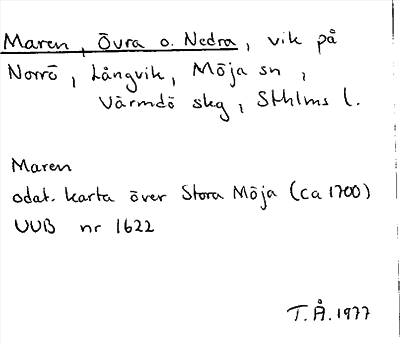 Maren, Övra o. Nedra, vik på
Norrö, Långvik, Möja sn,
Värmdö skg, Sthlms l.
Maren
odat. karta över Stora Möja (ca 1700)
UUB nr 1622
T.Å.1977